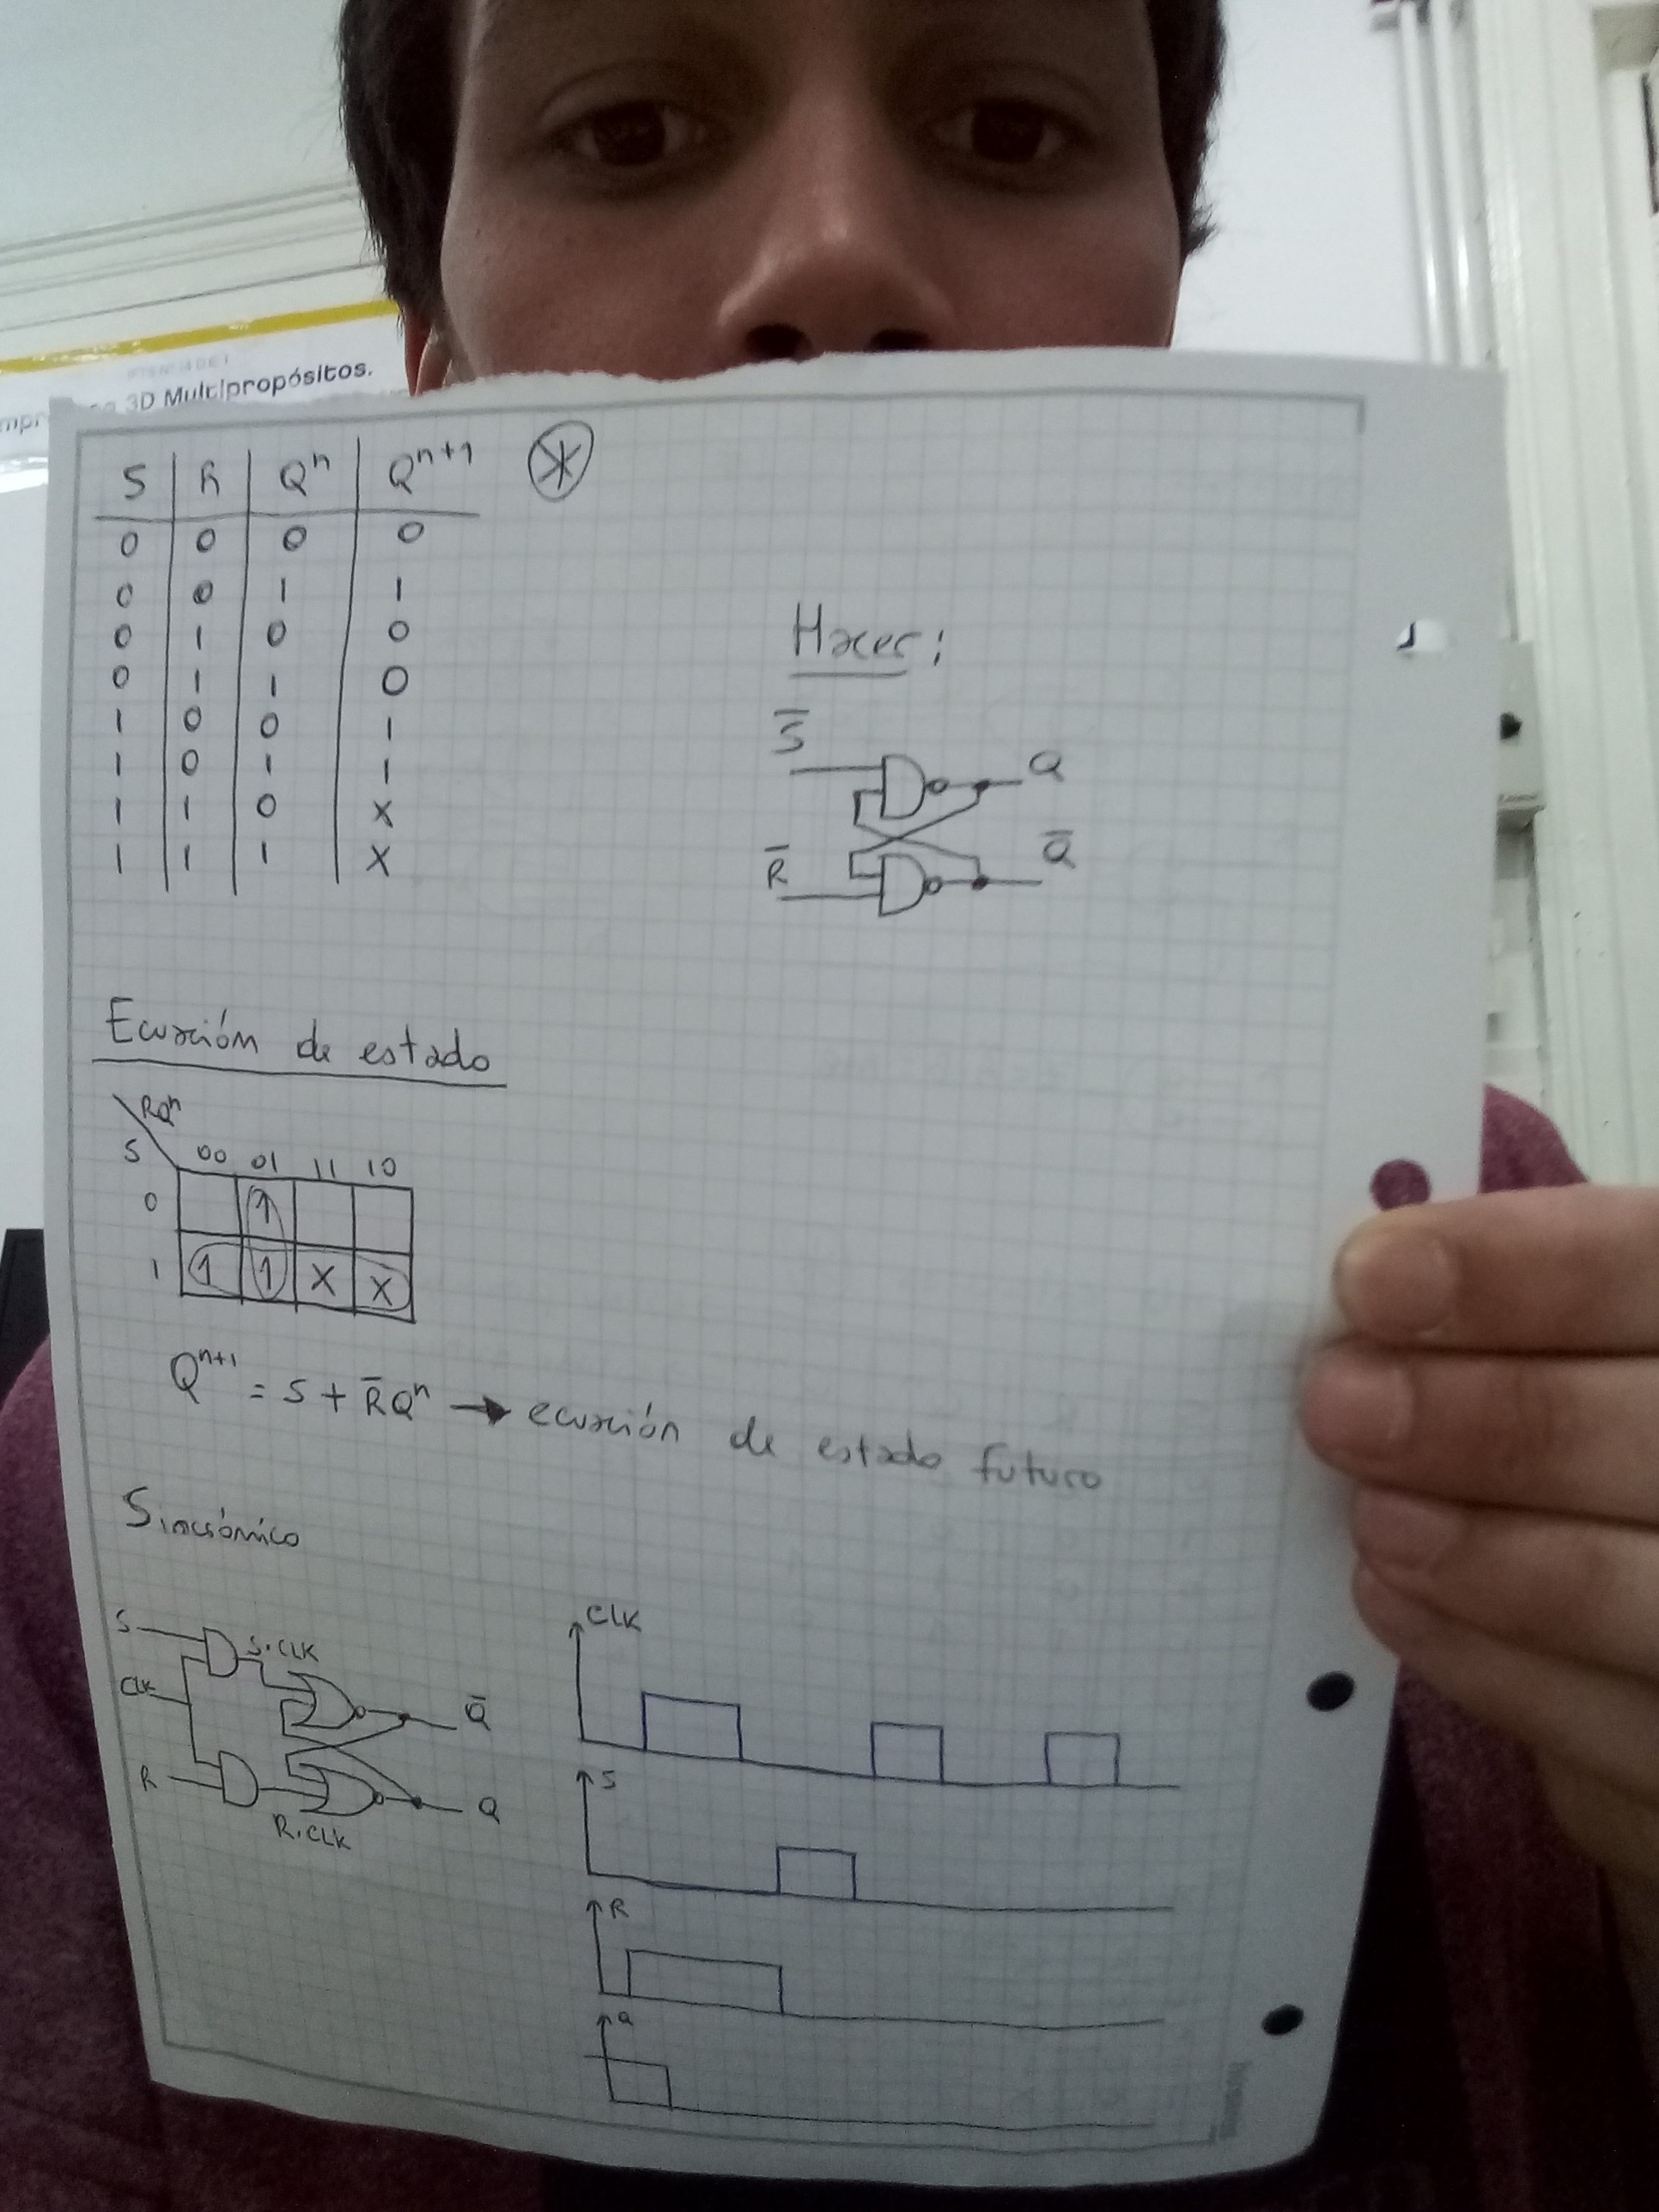 3D Multipropósitos.
S R Qⁿ Qⁿ⁺¹ *
0 0 0 0
0 0 1 1
0 1 0 0
0 1 1 0
1 0 0 1
1 0 1 1
1 1 0 X
1 1 1 X
Hacer:
S̅
Q
R̅
Q̅
Ecuación de estado
RQⁿ
S 00 01 11 10
0 1
1 1 1 X X
Qⁿ⁺¹ = S + R̅Qⁿ → ecuación de estado futuro
Sincrónico
S
S.CLK
CLK
Q̅
R
Q
R.CLK
CLK
S
R
Q